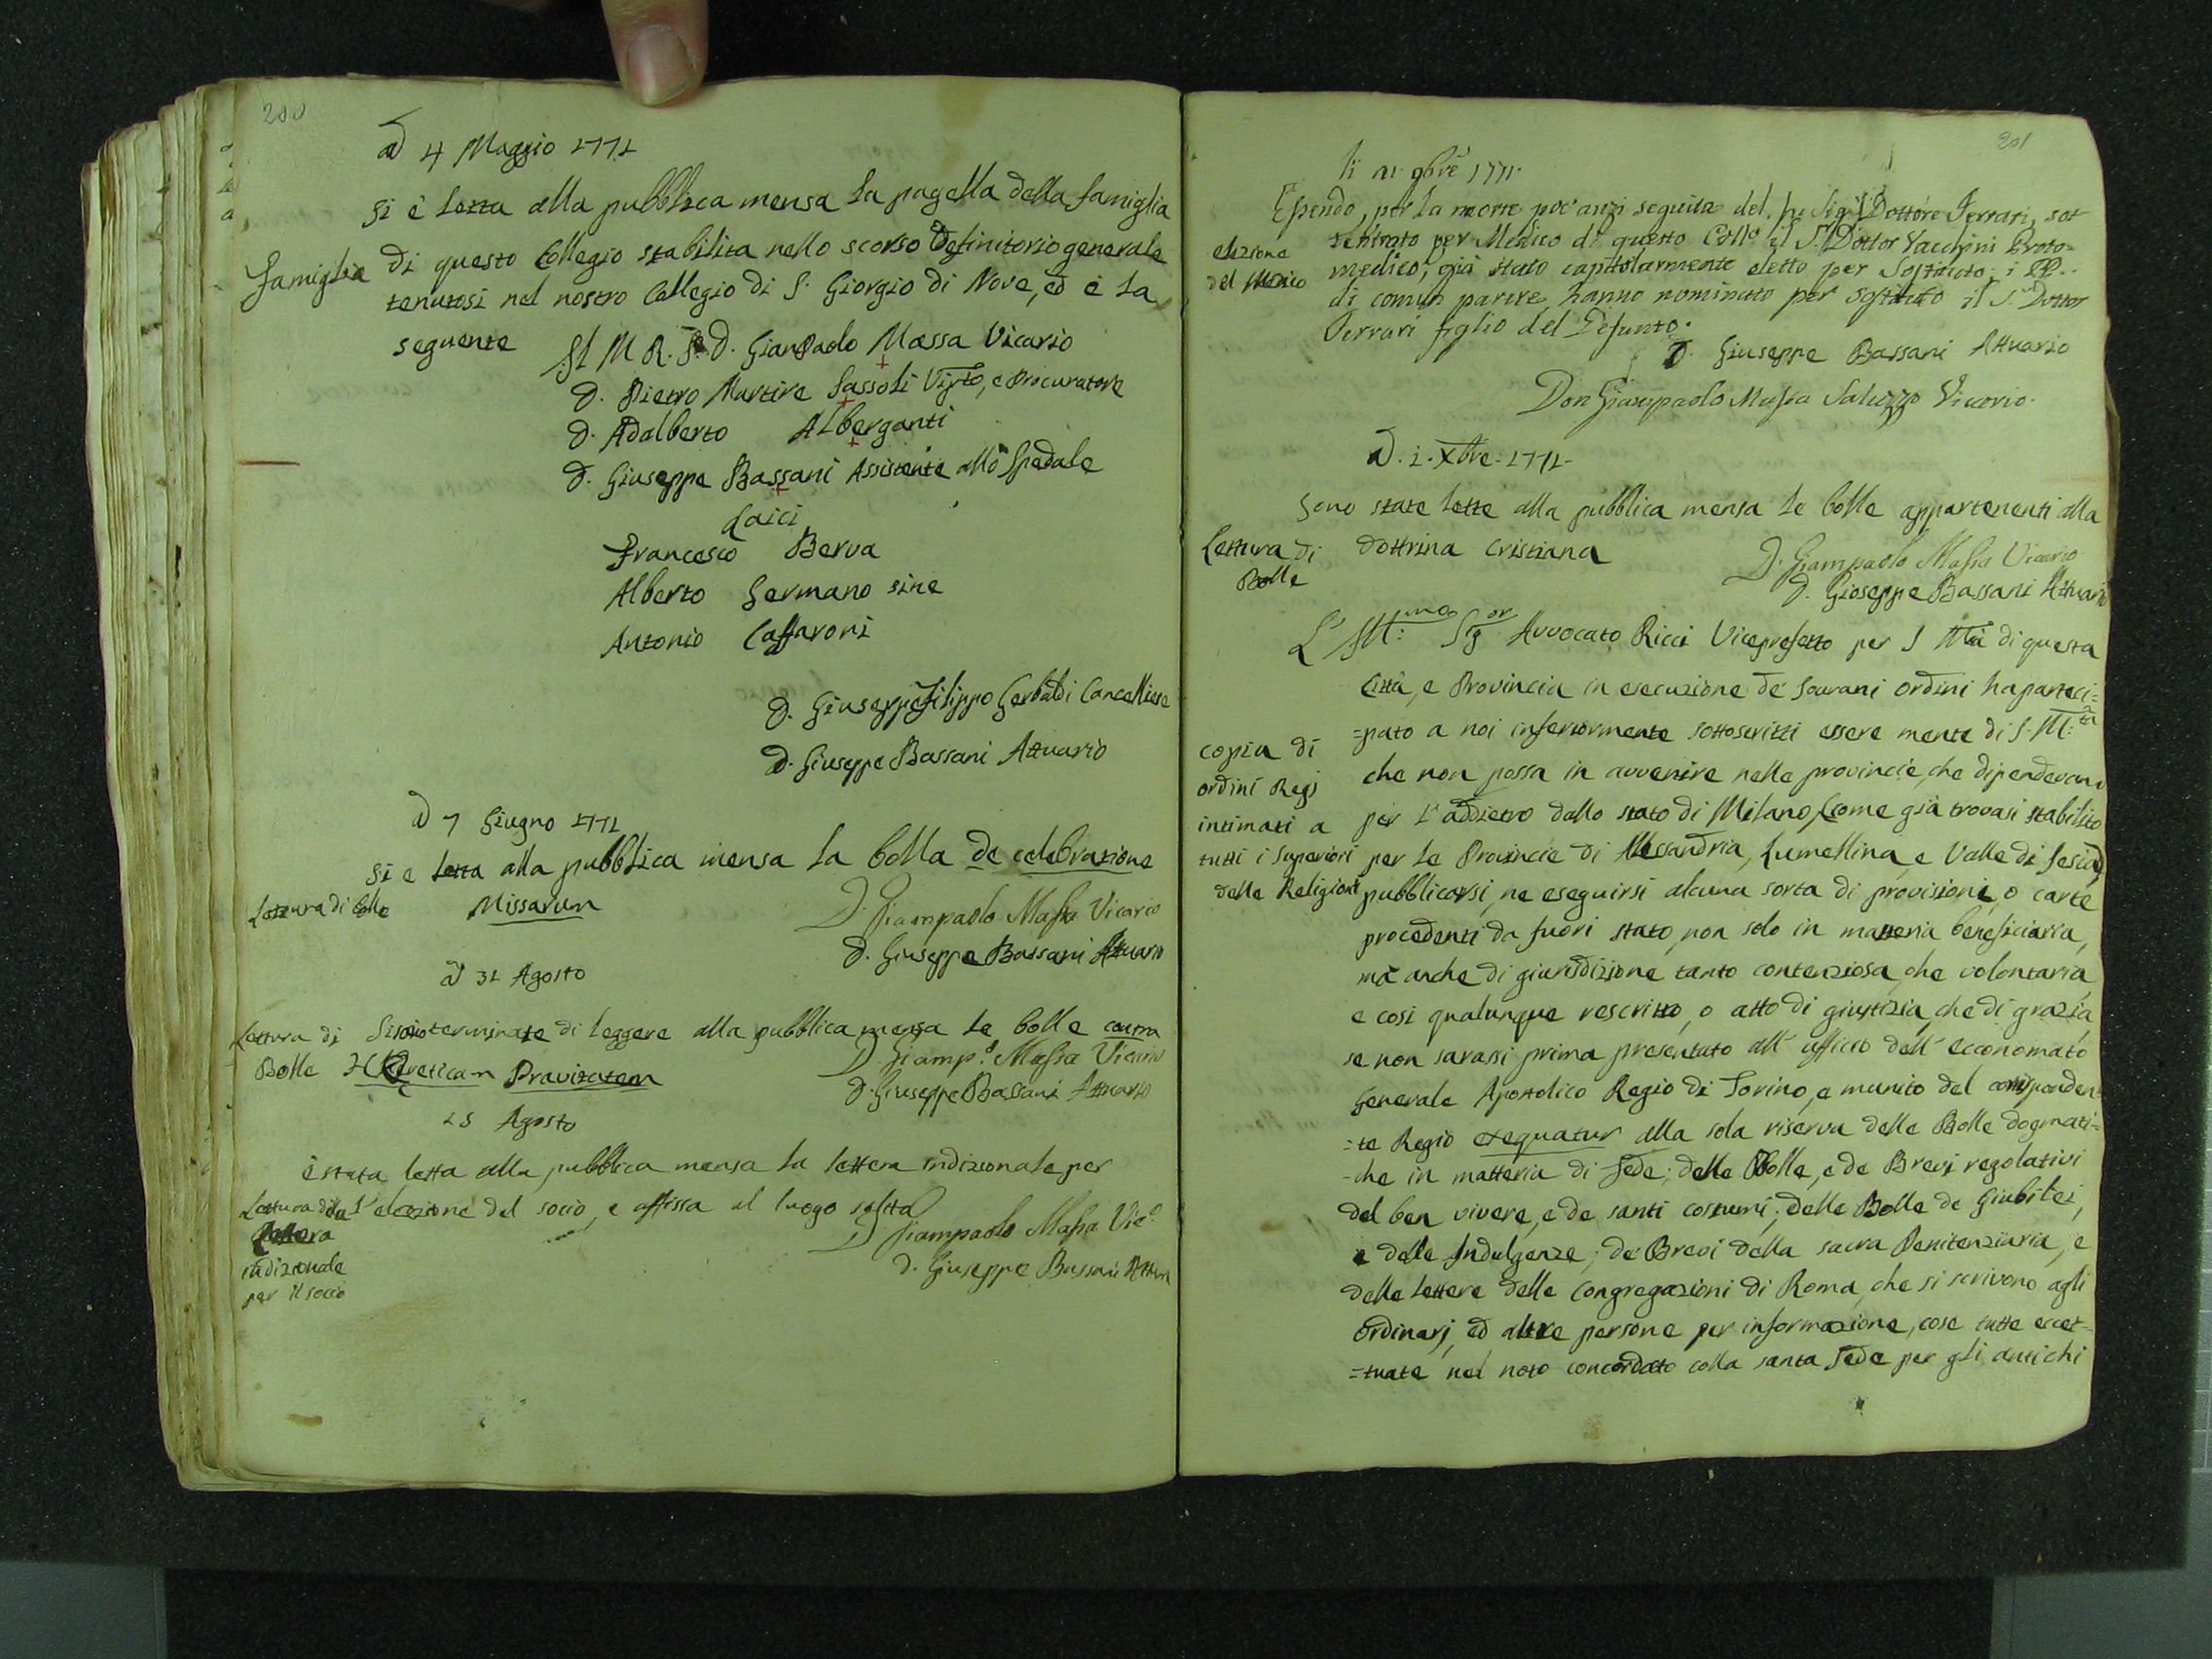 200
A dì 4 Maggio 1771
Si è letta alla pubblica mensa la pagella della famiglia
famiglia
di questo Collegio stabilita nello scorso Definitorio generale
tenutosi nel nostro Collegio di S. Giorgio di Nove, ed è la
seguente
Il M R. P. D. GianPaolo Massa Vicario
D. Pietro Martire Sassoli, e Procuratore
D. Adalberto Alberganti
D. Giuseppe Bassani Assistente allo Spedale
Laici
Francesco Berva
Alberto Germano sine
Antonio Caffaroni
D. Giuseppe Filippo Gerbaldi Cancelliere
D. Giuseppe Bassani Attuario
A dì 7 Giugno 1771
Si e letta alla pubblica mensa la bolla de celebratione
Lettura di bolle
Missarum
D. Giampaolo Massa Vicario
D. Giuseppe Bassani Attuario
A dì 31 Agosto
Lettura di
Bolle
terminate di leggere alla pubblica mensa le bolle contra
Hæreticam Pravitatem
D. Giamp.o Massa Vicario
D. Giuseppe Bassani Attuario
25 Agosto
è stata letta alla pubblica mensa la lettera indizionale per
l'elezione del socio, e affissa al luogo solito
Lettura della
Lettera
indizionale
per il socio
D. Giampaolo Massa Vic.o
D. Giuseppe Bassani
201
li 21 9bre 1771.
Essendo, per la morte poc'anzi seguita del Sig.r Dottore Ferrari, sot
tentrato per Medico di questo Coll.o il S.r Dottor Vacchini Proto-
elezione
del Medico
medico, già stato capitolarmente eletto per Sostituto; i PP.
di comun parere hanno nominato per sostituto il S.r Dottor
Ferrari figlio del Defunto.
D. Giuseppe Bassani Attuario
Don Giampaolo Massa Saluzzo Vicario.
A dì 1. Xbre. 1771.
Sono state lette alla pubblica mensa le bolle appartenenti alla
Lettura di
Bolle
dottrina cristiana
D. Giampaolo Massa Vicario
D. Gioseppe Bassani Attuario
L' Ill:mo Sig.or Avvocato Ricci Viceprefetto per S Mtà di questa
Città, e Provincia in esecuzione de Sovrani ordini ha parteci=
=pato a noi inferiormente sottoscritti essere mente di S. M:tà
copia di
ordini Regj
intimati a
tutti i superiori
delle Religioni
che non possa in avvenire nelle provincie, che dipendevano
per l'addietro dallo stato di Milano (come già trovasi stabilito
per le Provincie di Alessandria, Lumellina, e Valle di Sesia)
pubblicarsi, ne eseguirsi alcuna sorta di provisioni, o carte
procedenti da fuori stato, non solo in matteria beneficiaria,
mà anche di giurisdizione tanto contenziosa, che volontaria,
e così qualunque rescritto, o atto di giustizia, che di grazia,
se non sarassi prima presentato all' ufficio dell' ecconomato
Generale Apostolico Regio di Torino, e munito del corrisponden=
=te Regio exequatur alla sola riserva delle Bolle dogmati=
=che in matteria di fede; delle Bolle, e de Brevi regolativi
del ben vivere, e de santi costumi; delle Bolle de Giubilei,
e delle Indulgenze; de Brevi della sacra Penitenziaria, e
delle lettere delle Congregazioni di Roma, che si scrivono agli
Ordinarj, ed altre persone per informazione, cose tutte eccet=
=tuate nel noto concordato colla santa Sede per gli antichi